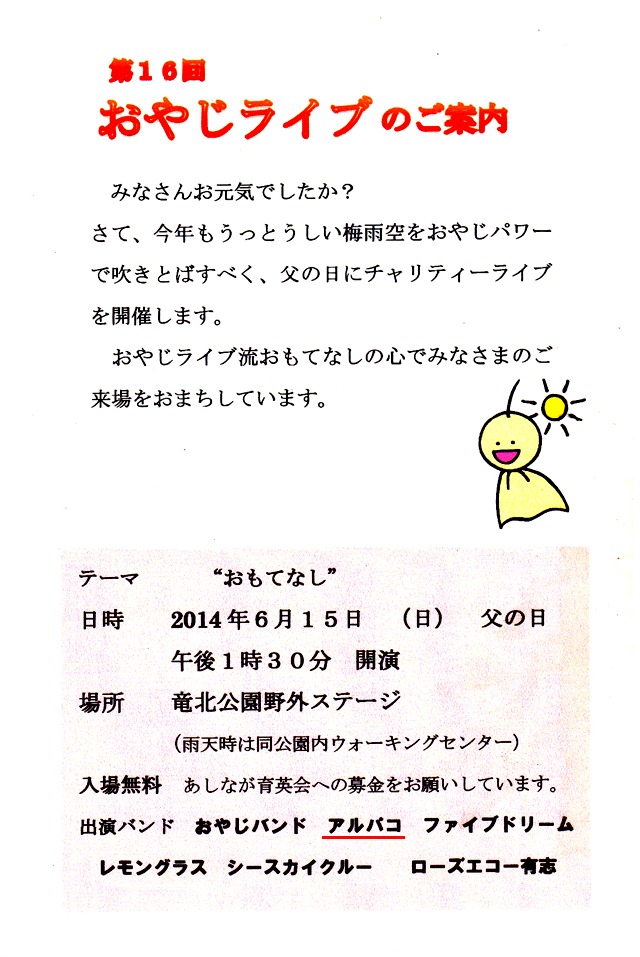 第１６回
おやじライブのご案内
みなさんお元気でしたか？
さて、今年もうっとうしい梅雨空をおやじパワー
で吹きとばすべく、父の日にチャリティーライブ
を開催します。
おやじライブ流おもてなしの心でみなさまのご
来場をおまちしています。
テーマ　“おもてなし”
日時　2014年６月１５日　（日）　父の日
午後１時３０分　開演
場所　竜北公園野外ステージ
（雨天時は同公園内ウォーキングセンター）
入場無料　あしなが育英会への募金をお願いしています。
出演バンド　おやじバンド　アルパコ　ファイブドリーム
レモングラス　シースカイクルー　ローズエコー有志